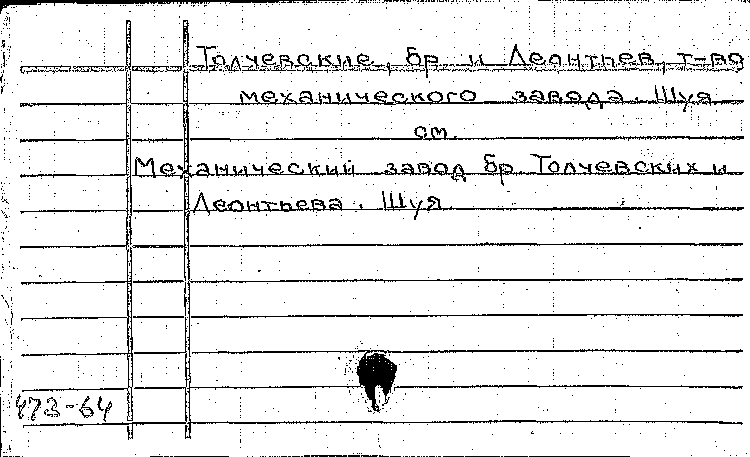 Толчевские, бр и Леонтьев, т-во
механического завода. Шуя
см.
Механический завод бр. Толчевских и
Леонтьева. Шуя.
473-64